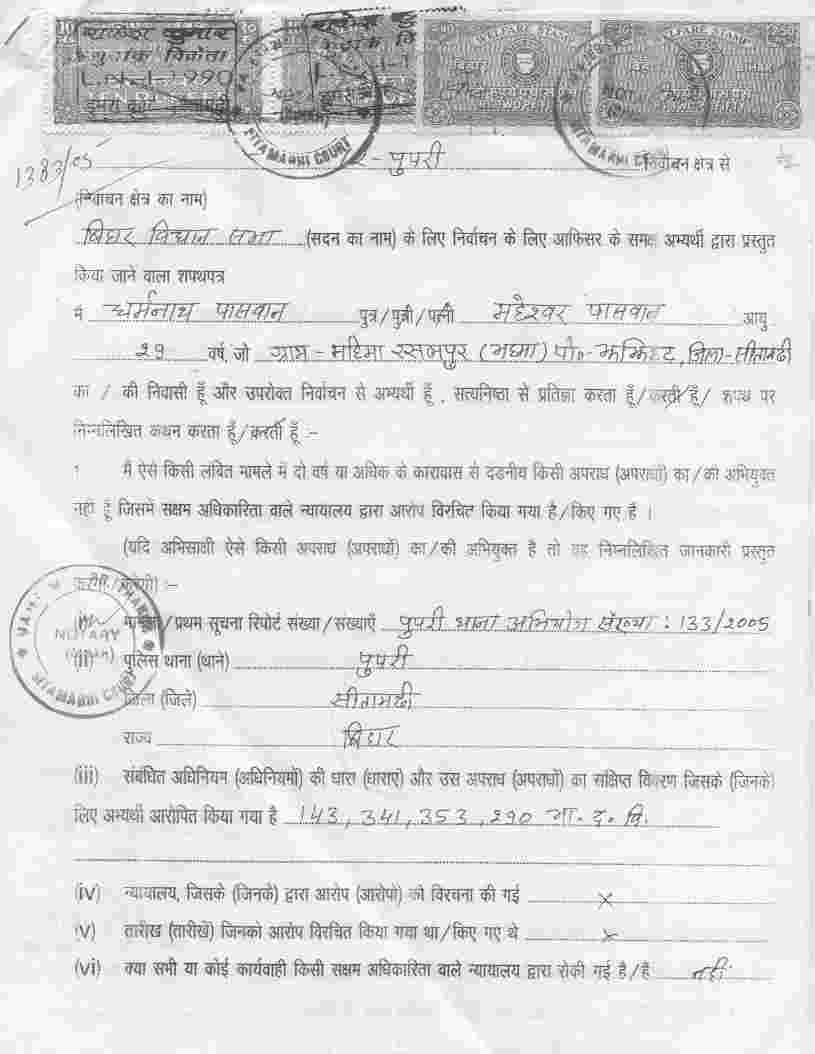 WELFARE STAMP WELFARE STAMP
SITAMARHI COURT SITAMARHI COURT
1383/05
पुपरी निर्वाचन क्षेत्र से
(निर्वाचन क्षेत्र का नाम)
बिहार विधान सभा (सदन का नाम) के लिए निर्वाचन के लिए आफिसर के समक्ष अभ्यर्थी द्वारा प्रस्तुत
किया जाने वाला शपथपत्र
मै धर्मनाथ पासवान पुत्र/पुत्री/पत्नी महेश्वर पासवान आयु
29 वर्ष, जो ग्राम - महिमा रसलपुर (मघ्मा) पो०- , जिला-सीतामढी
का / की निवासी हूँ और उपरोक्त निर्वाचन से अभ्यर्थी हूँ , सत्यनिष्ठा से प्रतिज्ञा करता हूँ/करती हूँ/ शपथ पर
निम्नलिखित कथन करता हूँ/करती हूँ :-
1 मै ऐसे किसी लंबित मामले में दो वर्ष या अधिक के कारावास से दडनीय किसी अपराध (अपराधों) का/की अभियुक्त
नही हूँ जिसमे सक्षम अधिकारिता वाले न्यायालय द्वारा आरोप विरचित किया गया है/किए गए है ।
(यदि अभिसाक्षी ऐसे किसी अपराध (अपराधों) का/की अभियुक्त है तो वह निम्नलिखित जानकारी प्रस्तुत
करेगा/करेगी) :-
(i) मामला/प्रथम सूचना रिपोर्ट संख्या/संख्याएँ पुपरी थाना अभियोग संख्या : 133/2005
NOTARY
(ii) पुलिस थाना (थाने) पुपरी
SITAMARHI COURT
जिला (जिले) सीतामढी
राज्य बिहार
(iii) संबंधित अधिनियम (अधिनियमों) की धारा (धाराएं) और उस अपराध (अपराधों) का संक्षिप्त विवरण जिसके (जिनके)
लिए अभ्यर्थी आरोपित किया गया है 143, 341, 353, 290 भा. द. वि.
(iv) न्यायालय, जिसके (जिनके) द्वारा आरोप (आरोपो) की विरचना की गई ×
(v) तारीख (तारीखें) जिनको आरोप विरचित किया गया था/किए गए थे ×
(vi) क्या सभी या कोई कार्यवाही किसी सक्षम अधिकारिता वाले न्यायालय द्वारा रोकी गई है/है नही